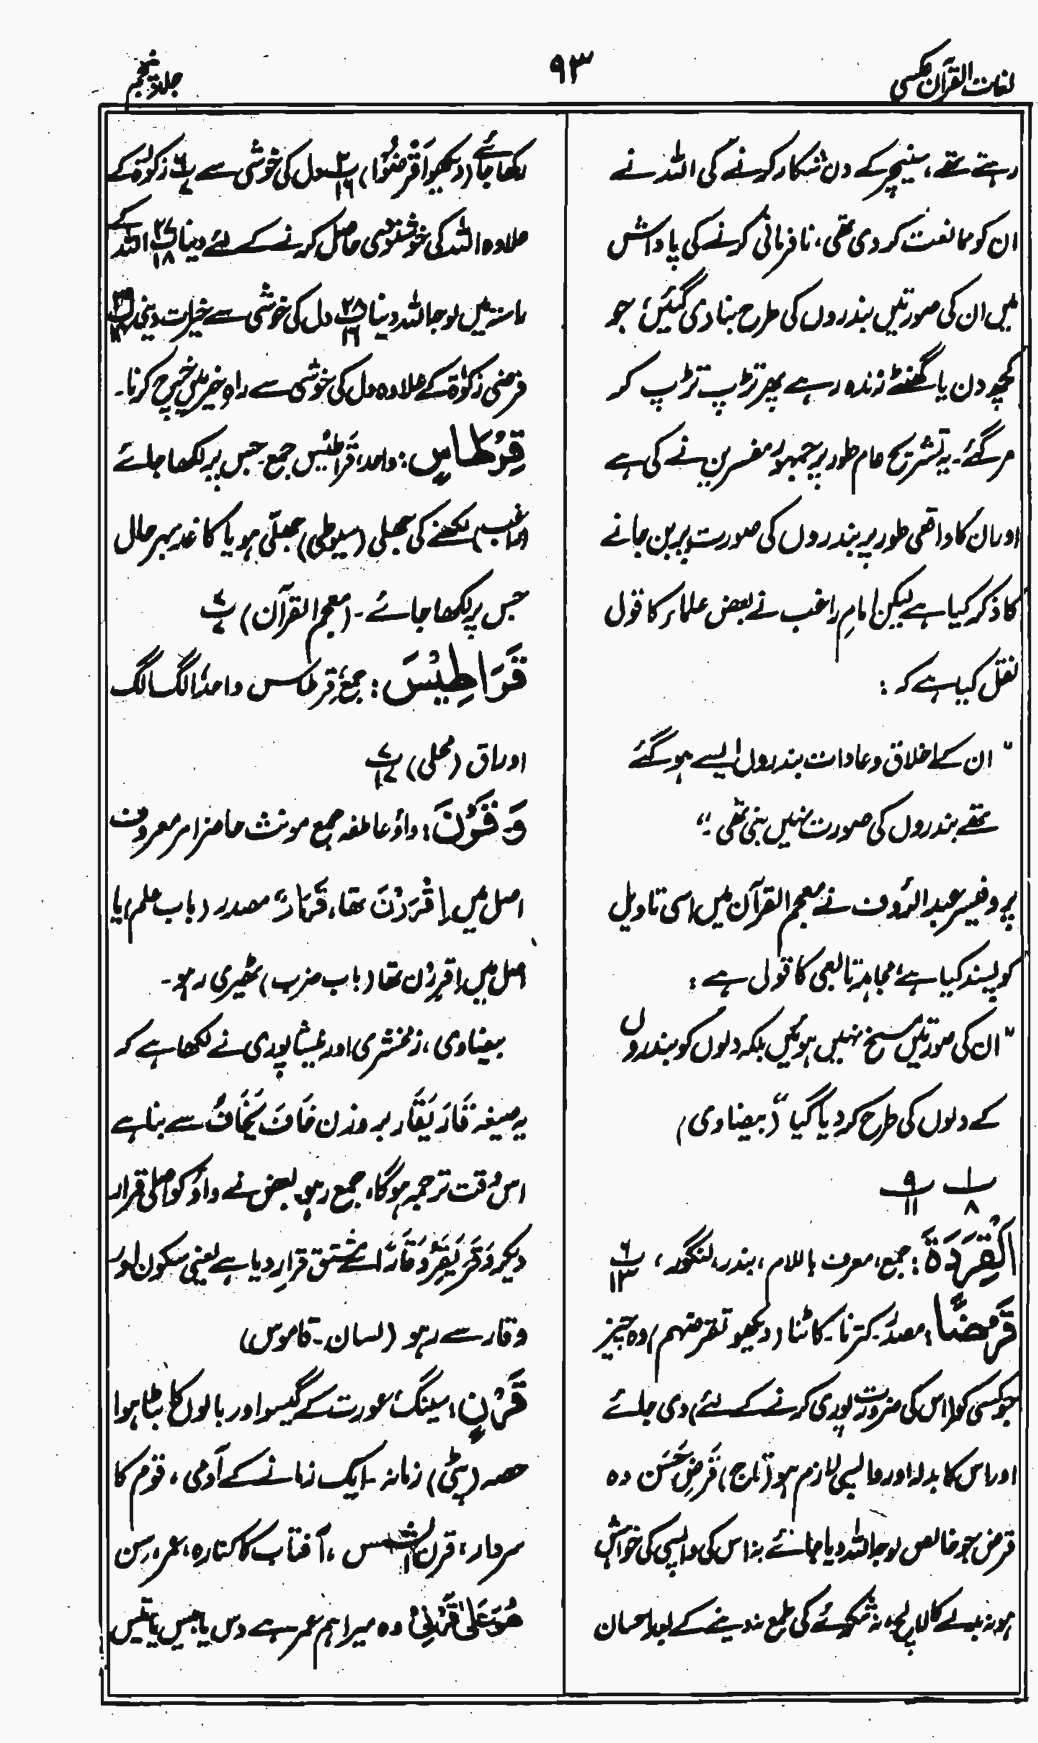 لغات القرآن عکسی
۹۳
جلد پنجم
رہتے تھے، سنیچر کے دن شکار کرنے کی اللہ نے
ان کو ممانعت کر دی تھی، نافرمانی کرنے کی پاداش
میں ان کی صورتیں بندروں کی طرح بنا دی گئیں، جو
کچھ دن یا گھنٹے زندہ رہے پھر تڑپ تڑپ کر
مر گئے۔ یہ تشریح عام طور پر جمہور مفسرین نے کی ہے
اور ان کا واقعی طور پر بندروں کی صورت پر بن جانے
کا ذکر کیا ہے لیکن امام راغب نے بعض علماء کا قول
نقل کیا ہے کہ :
"ان کے اخلاق و عادات بندروں ایسے ہو گئے
تھے بندروں کی صورت نہیں بنی تھی۔"
پروفیسر عبد الرؤف نے معجم القرآن میں اسی تاویل
کو پسند کیا ہے، مجاہد تابعی کا قول ہے :
"ان کی صورتیں مسخ نہیں ہوئیں بلکہ دلوں کو بندروں
کے دلوں کی طرح کر دیا گیا" (بیضاوی)
پ ۱ ۸ پ ۹ ۱۱
الْقِرَدَةَ : جمع، معرف باللام، بندر، لنگور، پ ۶ ۱۳
قَرْضًا : مصدر۔ کترنا۔ کاٹنا (دیکھو تقرضہم) وہ چیز
جو کسی کو (اس کی ضرورت پوری کرنے کے لئے) دی جائے
اور اس کا بدلہ اور واپسی لازم ہو (تاج) قرضِ حَسَن وہ
قرض جو خالص لوجہ اللہ دیا جائے نہ اس کی واپسی کی خواہش
ہو نہ بدلے کا لالچ، نہ شکریئے کی طمع نہ دینے کے بعد احسان
رکھا جائے (دیکھو اَقْرِضُوْا) پ ۲ ۱۶ دل کی خوشی سے پ ۶ ۷ زکوٰۃ کے
علاوہ اللہ کی خوشنودی حاصل کرنے کے لئے دینا پ ۲۷ ۱۸ اللہ کے
راستہ میں لوجہ اللہ دینا پ ۲۸ ۱۶ دل کی خوشی سے خیرات دینی پ ۲۹
فرضی زکوٰۃ کے علاوہ دل کی خوشی سے راہِ خیر میں خرچ کرنا۔
قِرْطَاسٍ : واحد، قَرَاطِیْس جمع۔ جس پر لکھا جائے
(راغب) لکھنے کی جھلی (سیوطی) جھلّی ہو یا کاغذ بہرحال
جس پر لکھا جائے۔ (معجم القرآن) پ ۷ ۷
قَرَاطِيْسَ : جمع، قرطاس واحد، الگ الگ
اوراق (محلی) پ ۷ ۱۷
وَقَرْنَ : واؤ عاطفہ جمع مونث حاضر امر معروف
اصل میں اِقْرَرْنَ تھا، قَرَارٌ مصدر (باب علم) یا
اصل میں اِقْرِرْنَ تھا (باب ضرب) ٹھیری رہو۔
بیضاوی، زمخشری اور نیشاپوری نے لکھا ہے کہ
یہ صیغہ قَارَ یَقَارُ بر وزن خَافَ یَخَافُ سے بنا ہے
اس وقت ترجمہ ہوگا، جمع رہو۔ بعض نے واؤ کو اصلی قرار
دیکر وَقَرَ یَقِرُ وَقَارًا سے مشتق قرار دیا ہے یعنی سکون اور
وقار سے رہو (لسان۔ قاموس)
قَرْنٍ : سینگ، عورت کے گیسو اور بالوں کا بٹا ہوا
حصہ (پٹی) زمانہ۔ ایک زمانے کے آدمی، قوم کا
سردار، قرن الشمس، آفتاب کا کنارہ، عمر، سن
هُوَ عَلٰی قَرْنِیْ وہ میرا ہم عمر ہے دس یا بیس یا تیس